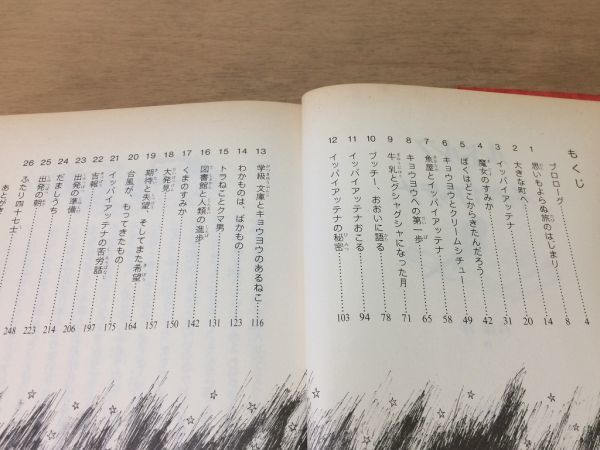 もくじ
プロローグ 4
1 思いもよらぬ旅のはじまり 8
2 大きな町へ 14
3 イッパイアッテナ 20
4 魔女のすみか 31
5 ぼくはどこからきたんだろう 42
6 キョウヨウとクリームシチュー 49
7 魚屋とイッパイアッテナ 58
8 キョウヨウへの第一歩 65
9 牛乳とグシャグシャになった月 71
10 ブッチー、おおいに語る 78
11 イッパイアッテナおこる 94
12 イッパイアッテナの秘密 103
13 学級文庫とキョウヨウのあるねこ 116
14 わかものは、ばかもの 123
15 トラねことクマ男 131
16 図書館と人類の進歩 142
17 くまのすみか 150
18 大発見 157
19 期待と失望、そしてまた希望 164
20 台風が、もってきたもの 175
21 イッパイアッテナの苦労話 184
22 吉報 197
23 出発の準備 206
24 だましうち 214
25 出発の朝 223
26 ふたり四十七士 248
あとがき